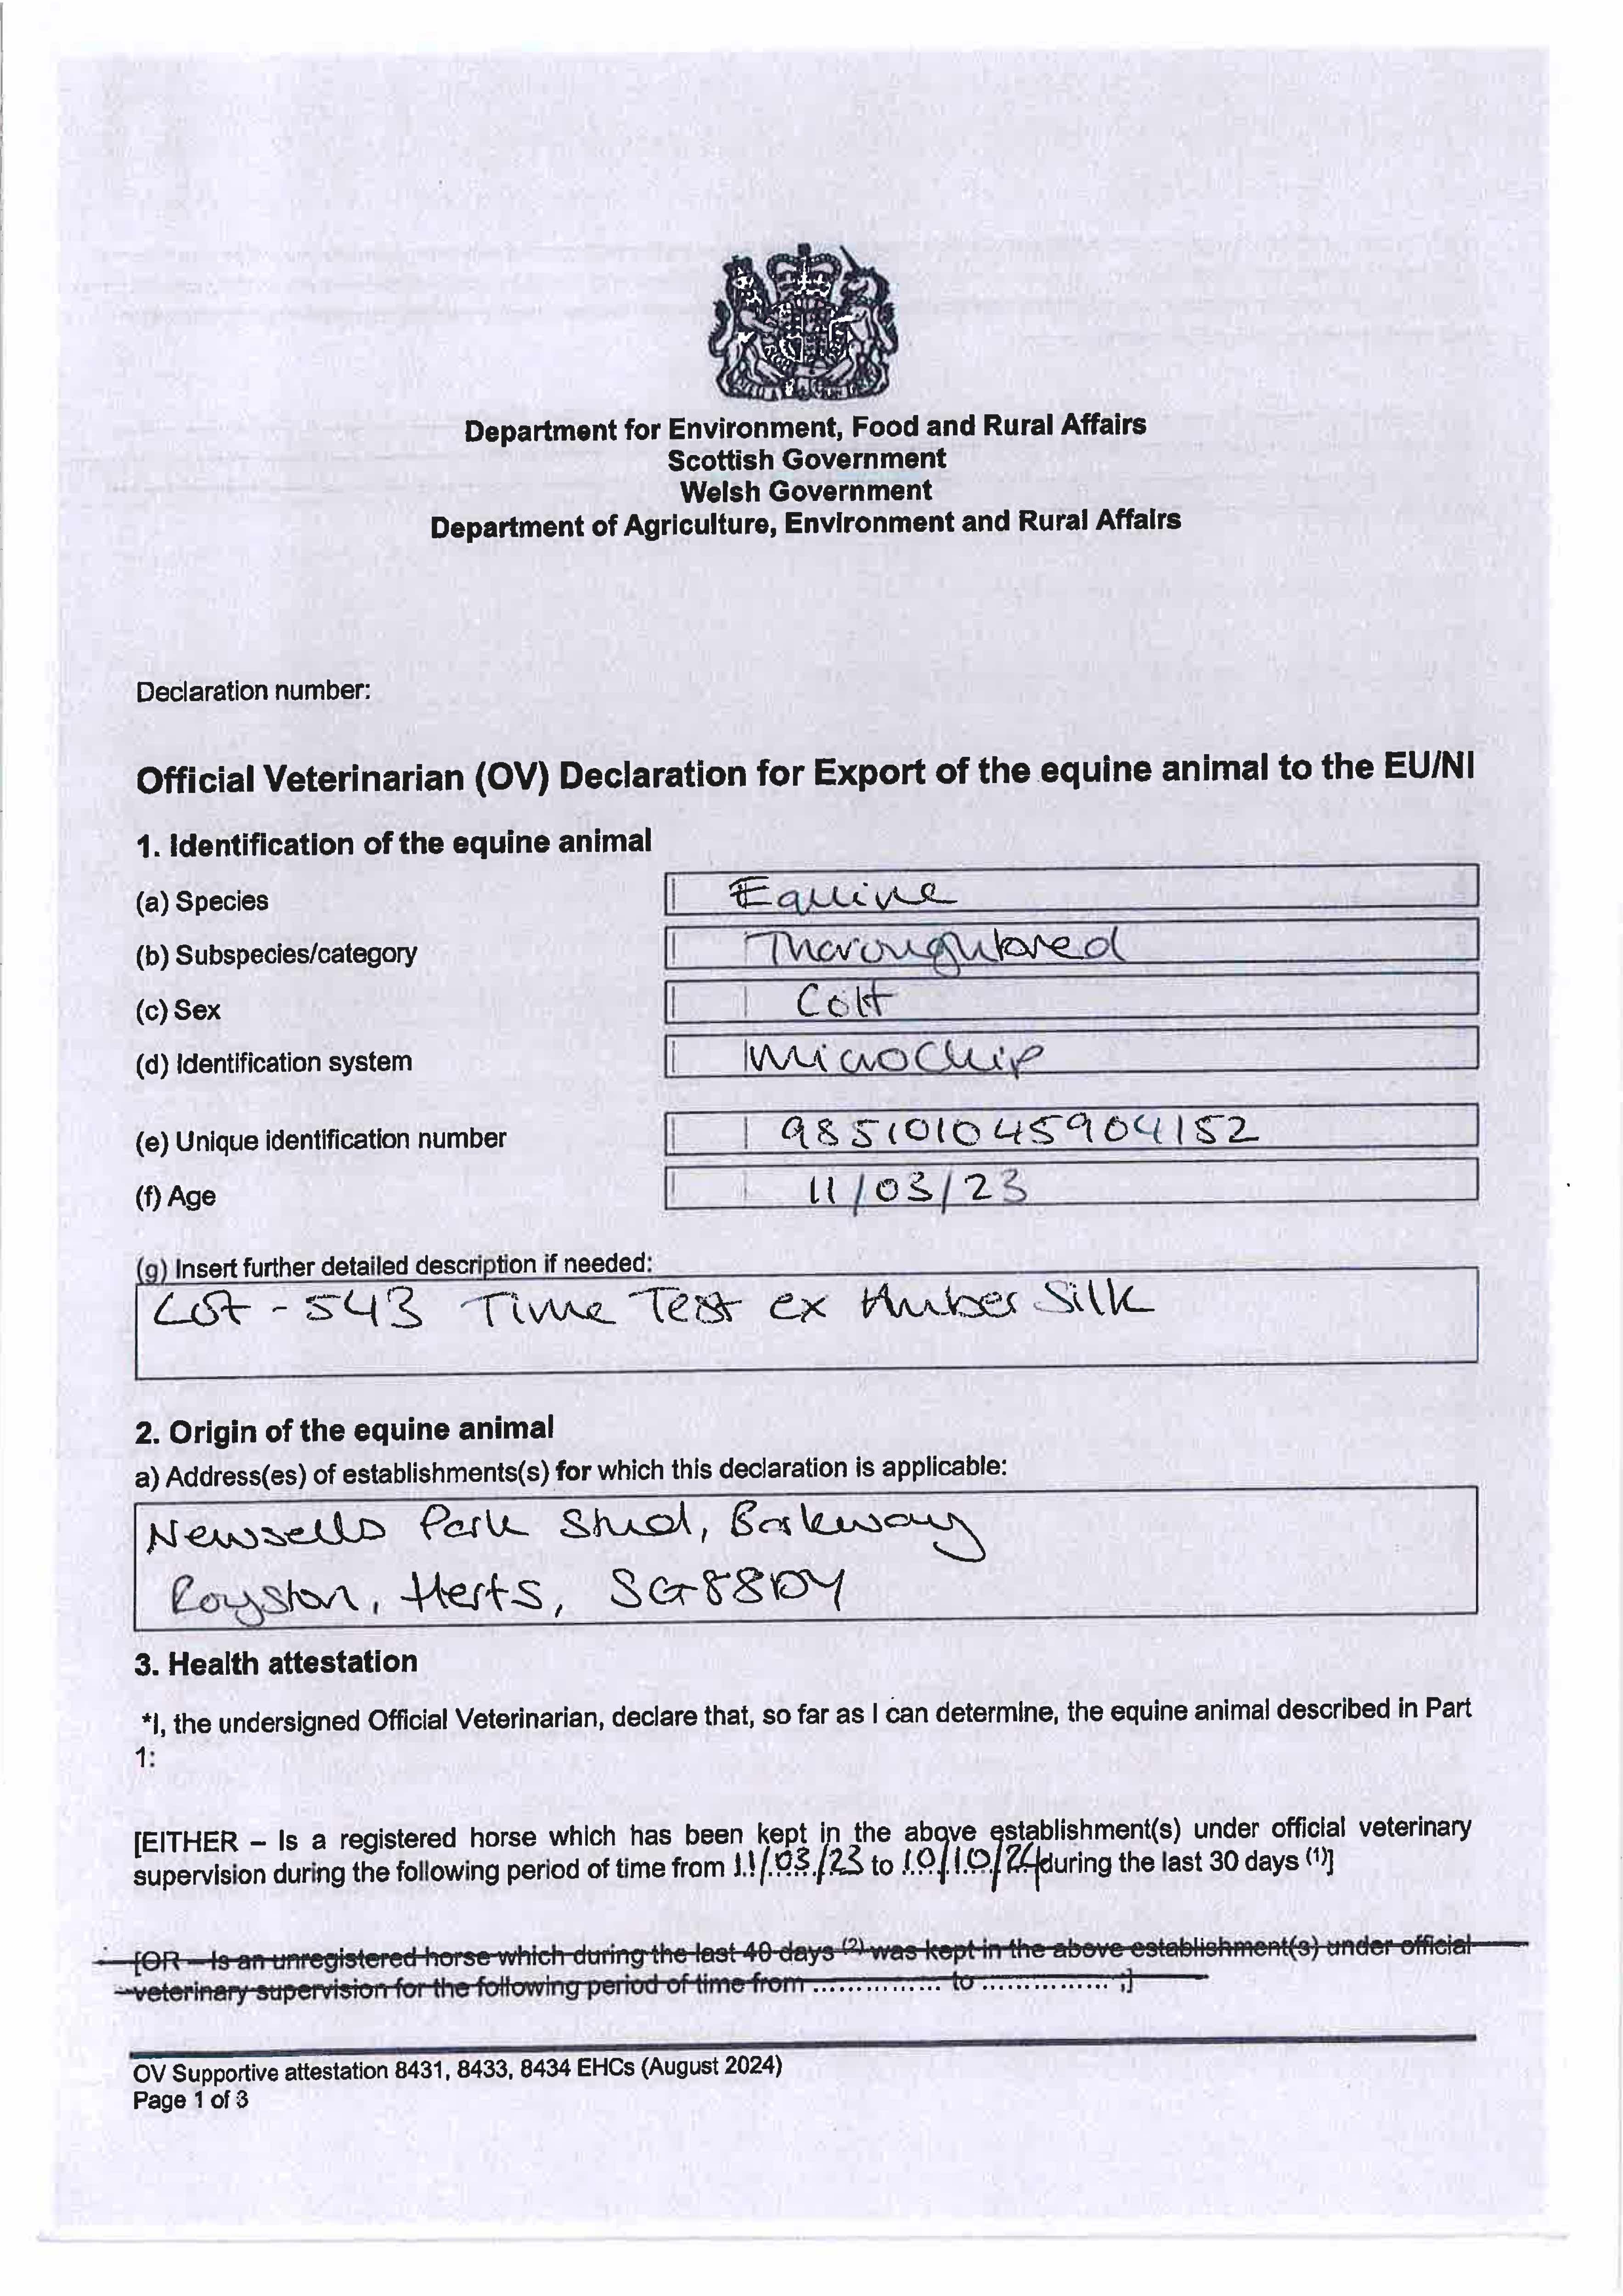 Department for Environment, Food and Rural Affairs
Scottish Government
Welsh Government
Department of Agriculture, Environment and Rural Affairs
Declaration number:
Official Veterinarian (OV) Declaration for Export of the equine animal to the EU/NI
1. Identification of the equine animal
(a) Species Equine
(b) Subspecies/category Thoroughbred
(c) Sex Colt
(d) Identification system Microchip
(e) Unique identification number 985101045904152
(f) Age 11/03/23
(g) Insert further detailed description if needed:
Lot - 543 Time Test ex Silk
2. Origin of the equine animal
a) Address(es) of establishments(s) for which this declaration is applicable:
Newsells Park Stud, Barkway
Royston, Herts, SG8 8DY
3. Health attestation
*I, the undersigned Official Veterinarian, declare that, so far as I can determine, the equine animal described in Part
1:
[EITHER – Is a registered horse which has been kept in the above establishment(s) under official veterinary
supervision during the following period of time from 11/03/23 to 10/10/24 during the last 30 days (1)]
[OR – Is an unregistered horse which during the last 40 days (2) was kept in the above establishment(s) under official
veterinary supervision for the following period of time from ............... to ............... ;]
OV Supportive attestation 8431, 8433, 8434 EHCs (August 2024)
Page 1 of 3